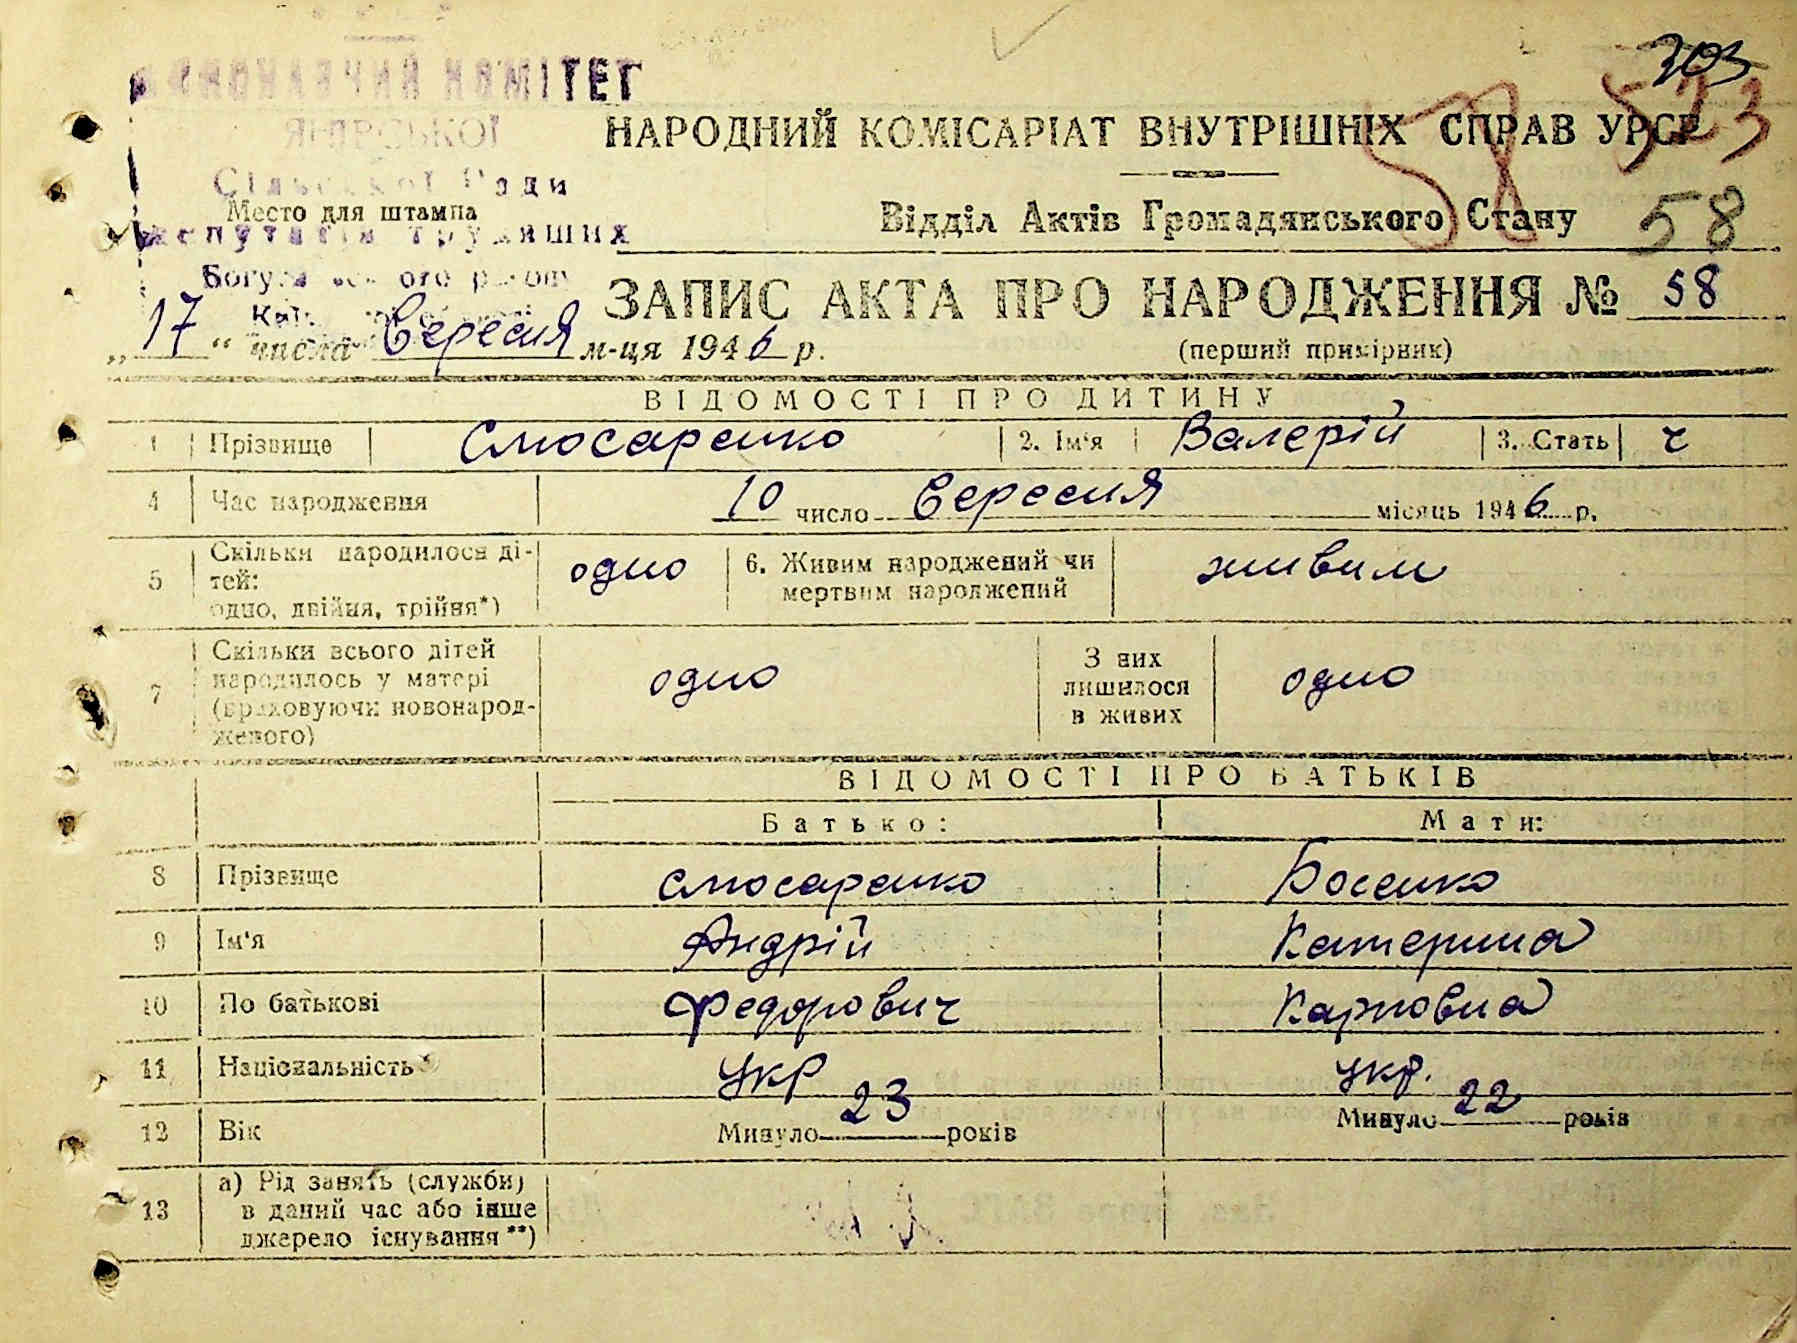 303
523
НАРОДНИЙ КОМІСАРІАТ ВНУТРІШНІХ СПРАВ УРСР
58
Сільської Ради
Место для штампа
депутатів трудящих
Відділ Актів Громадянського Стану
58
ЗАПИС АКТА ПРО НАРОДЖЕННЯ № 58
„17“ числа Вересня м-ця 1946 р.
(перший примірник)
ВІДОМОСТІ ПРО ДИТИНУ
1 Прізвище Слюсаренко 2. Ім‘я Валерій 3. Стать ч
4 Час народження 10 число Вересня місяць 1946 р.
5 Скільки народилося ді-
тей:
одно, двійня, трійня*) одно
6. Живим народжений чи
мертвим народжений живим
7 Скільки всього дітей
народилось у матері
(враховуючи новонарод-
женого) одно
З них
лишилося
в живих одно
ВІДОМОСТІ ПРО БАТЬКІВ
Батько: Мати:
8 Прізвище Слюсаренко Босенко
9 Ім‘я Андрій Катерина
10 По батькові Федорович Карповна
11 Національність укр укр.
12 Вік Минуло 23 років Минуло 22 років
13 а) Рід занять (служби)
в даний час або інше
джерело існування**)